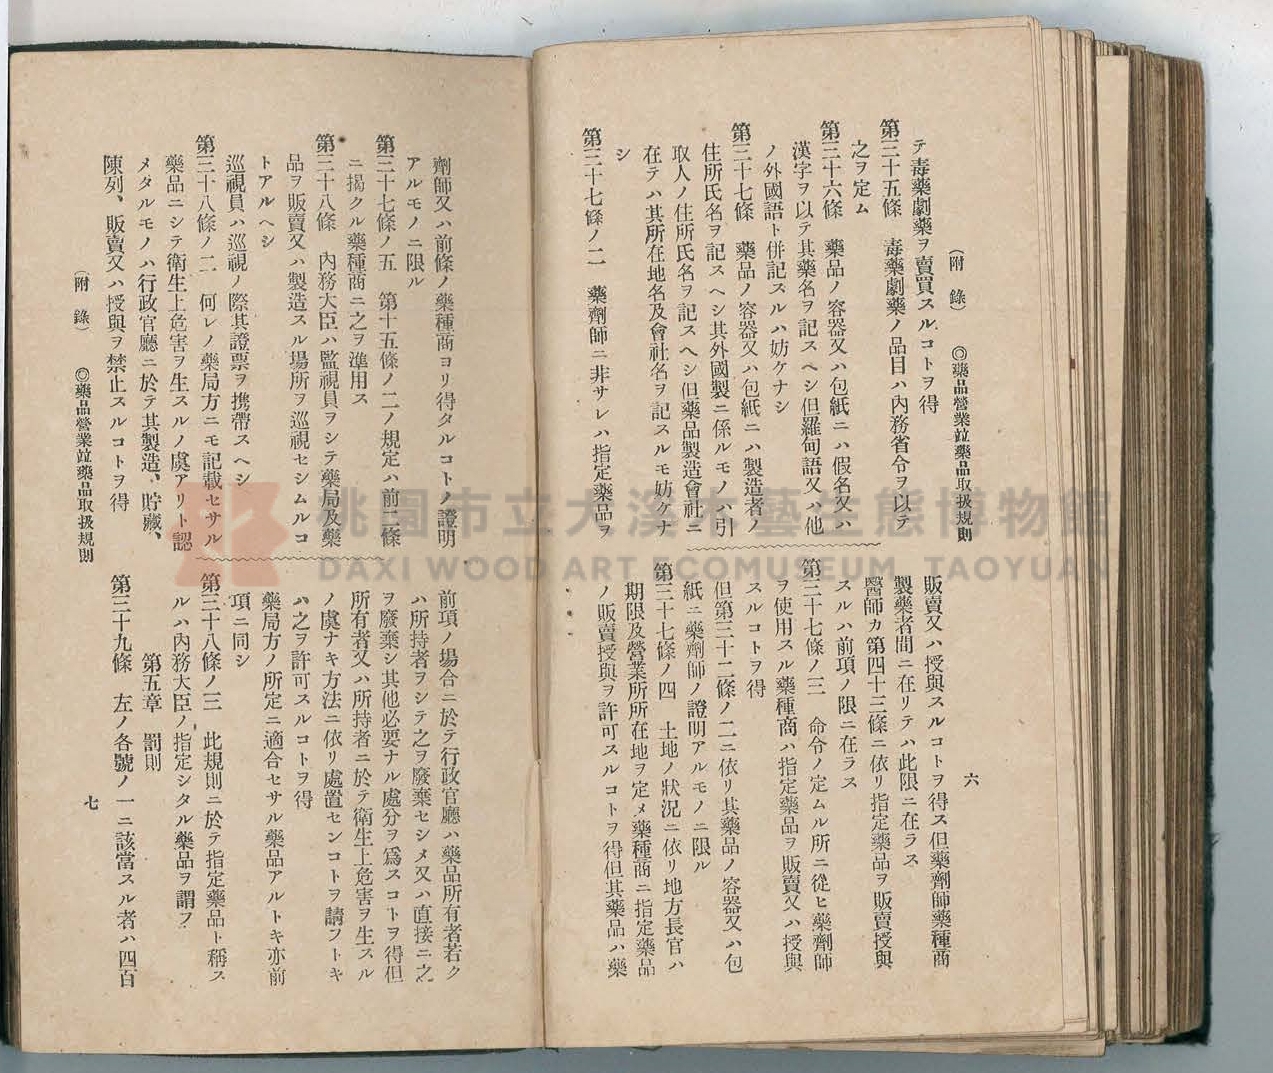 (附錄) ◎藥品營業竝藥品取扱規則
六
テ毒藥劇藥ヲ賣買スルコトヲ得
第三十五條 毒藥劇藥ノ品目ハ內務省令ヲ以テ
之ヲ定ム
第三十六條 藥品ノ容器又ハ包紙ニハ假名又ハ
漢字ヲ以テ其藥名ヲ記スヘシ但羅甸語又ハ他
ノ外國語ト併記スルハ妨ケナシ
第三十七條 藥品ノ容器又ハ包紙ニハ製造者ノ
住所氏名ヲ記スヘシ其外國製ニ係ルモノハ引
取人ノ住所氏名ヲ記スヘシ但藥品製造會社ニ
在テハ其所在地名及會社名ヲ記スルモ妨ケナ
シ
第三十七條ノ二 藥劑師ニ非サレハ指定藥品ヲ
販賣又ハ授與スルコトヲ得ス但藥劑師藥種商
製藥者間ニ在リテハ此限ニ在ラス
醫師カ第四十三條ニ依リ指定藥品ヲ販賣授與
スルハ前項ノ限ニ在ラス
第三十七條ノ三 命令ノ定ムル所ニ從ヒ藥劑師
ヲ使用スル藥種商ハ指定藥品ヲ販賣又ハ授與
スルコトヲ得
但第三十二條ノ二ニ依リ其藥品ノ容器又ハ包
紙ニ藥劑師ノ證明アルモノニ限ル
第三十七條ノ四 土地ノ狀況ニ依リ地方長官ハ
期限及營業所所在地ヲ定メ藥種商ニ指定藥品
ノ販賣授與ヲ許可スルコトヲ得但其藥品ハ藥
劑師又ハ前條ノ藥種商ヨリ得タルコトノ證明
アルモノニ限ル
第三十七條ノ五 第十五條ノ二ノ規定ハ前二條
ニ揭クル藥種商ニ之ヲ準用ス
第三十八條 內務大臣ハ監視員ヲシテ藥局及藥
品ヲ販賣又ハ製造スル場所ヲ巡視セシムルコ
トアルヘシ
巡視員ハ巡視ノ際其證票ヲ携帶スヘシ
第三十八條ノ二 何レノ藥局方ニモ記載セサル
藥品ニシテ衛生上危害ヲ生スルノ虞アリト認
メタルモノハ行政官廳ニ於テ其製造、貯藏、
陳列、販賣又ハ授與ヲ禁止スルコトヲ得
前項ノ場合ニ於テ行政官廳ハ藥品所有者若ク
ハ所持者ヲシテ之ヲ廢棄セシメ又ハ直接ニ之
ヲ廢棄シ其他必要ナル處分ヲ爲スコトヲ得但
所有者又ハ所持者ニ於テ衛生上危害ヲ生スル
ノ虞ナキ方法ニ依リ處置センコトヲ請フトキ
ハ之ヲ許可スルコトヲ得
藥局方ノ所定ニ適合セサル藥品アルトキ亦前
項ニ同シ
第三十八條ノ三 此規則ニ於テ指定藥品ト稱ス
ルハ內務大臣ノ指定シタル藥品ヲ謂フ
第五章 罰則
第三十九條 左ノ各號ノ一ニ該當スル者ハ四百
(附錄) ◎藥品營業竝藥品取扱規則
七
桃園市立大溪木藝生態博物館
DAXI WOOD ART ECOMUSEUM, TAOYUAN